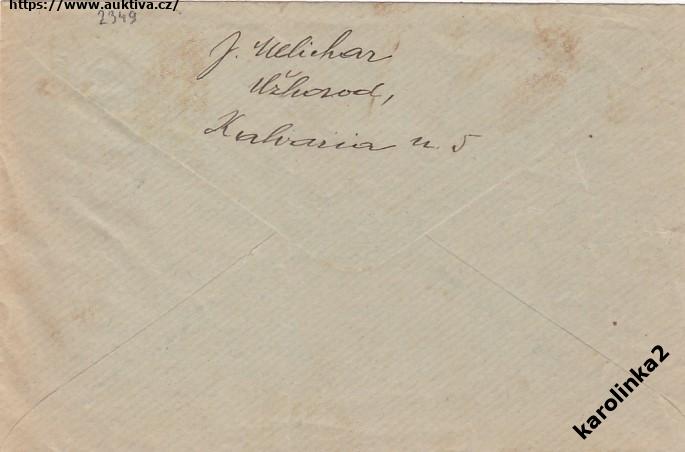 https://www.auktiva.cz/
2349
J. Melichar
Užhorod,
Kalvaria u. 5
karolinka2